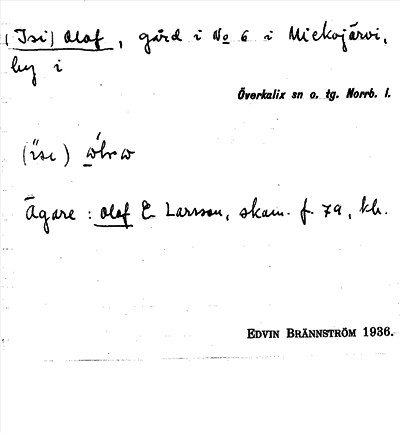 (Isi) Olof, gård i No 6 i Mickojärvi,
by i
Överkalix sn o. tg. Norrb. l.
Ägare : Olof E Larsson, skam. f. 79, kh.
EDVIN BRÄNNSTRÖM 1936.